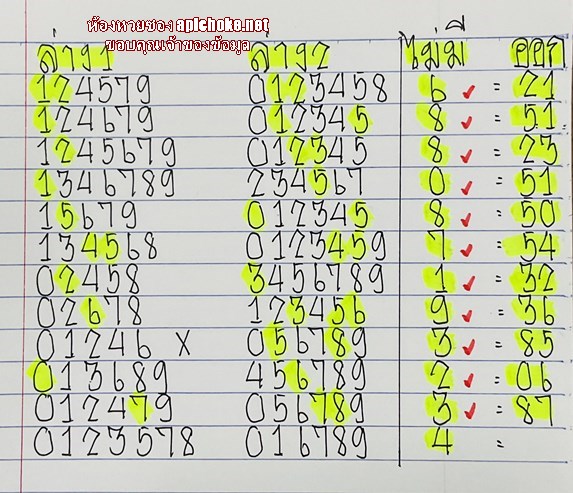 ห้องหวยของ aplchoke.net
ขอบคุณเจ้าของข้อมูล
ล่าง1 ล่าง2 ไม่มี ออก
124579 0123458 6 ✓ = 21
124679 012345 8 ✓ = 51
1245679 012345 8 ✓ = 23
1346789 234567 0 ✓ = 51
15679 012345 8 ✓ = 50
134568 0123459 7 ✓ = 54
02458 3456789 1 ✓ = 32
02678 123456 9 ✓ = 36
01246 X 056789 3 ✓ = 85
013689 456789 2 ✓ = 06
012479 056789 3 ✓ = 87
0123578 016789 4 =